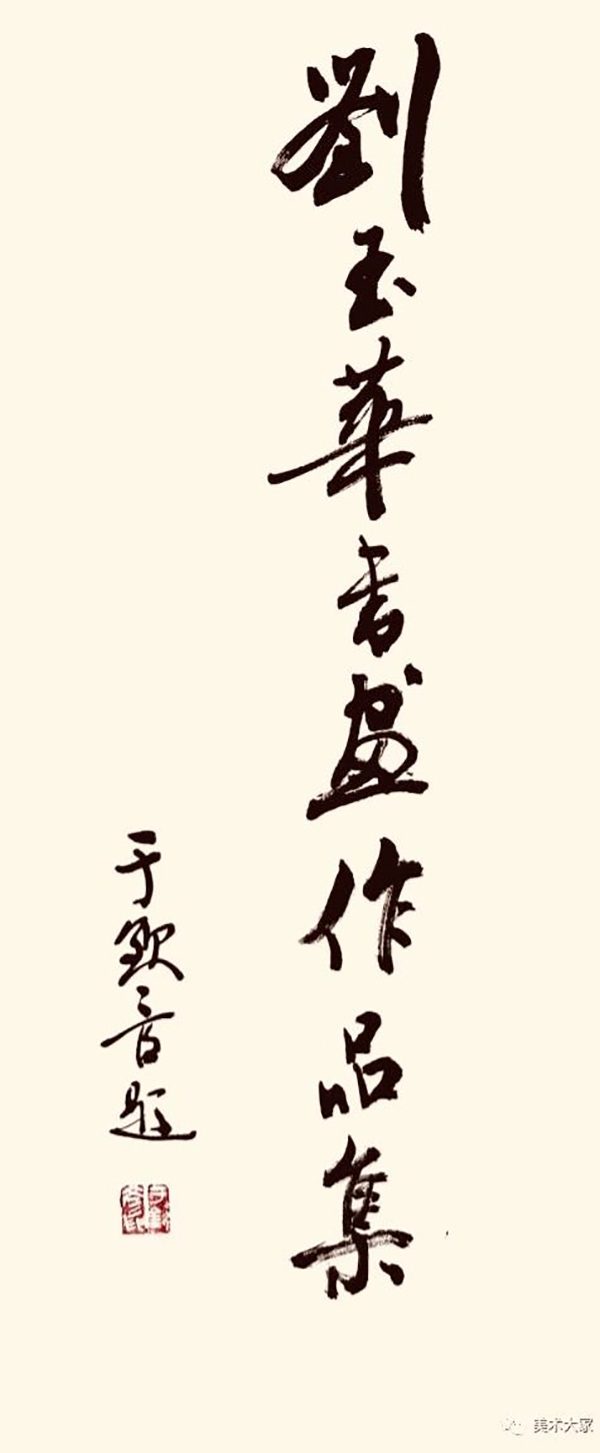 劉玉華書畫作品集
于歆音題
美术大家